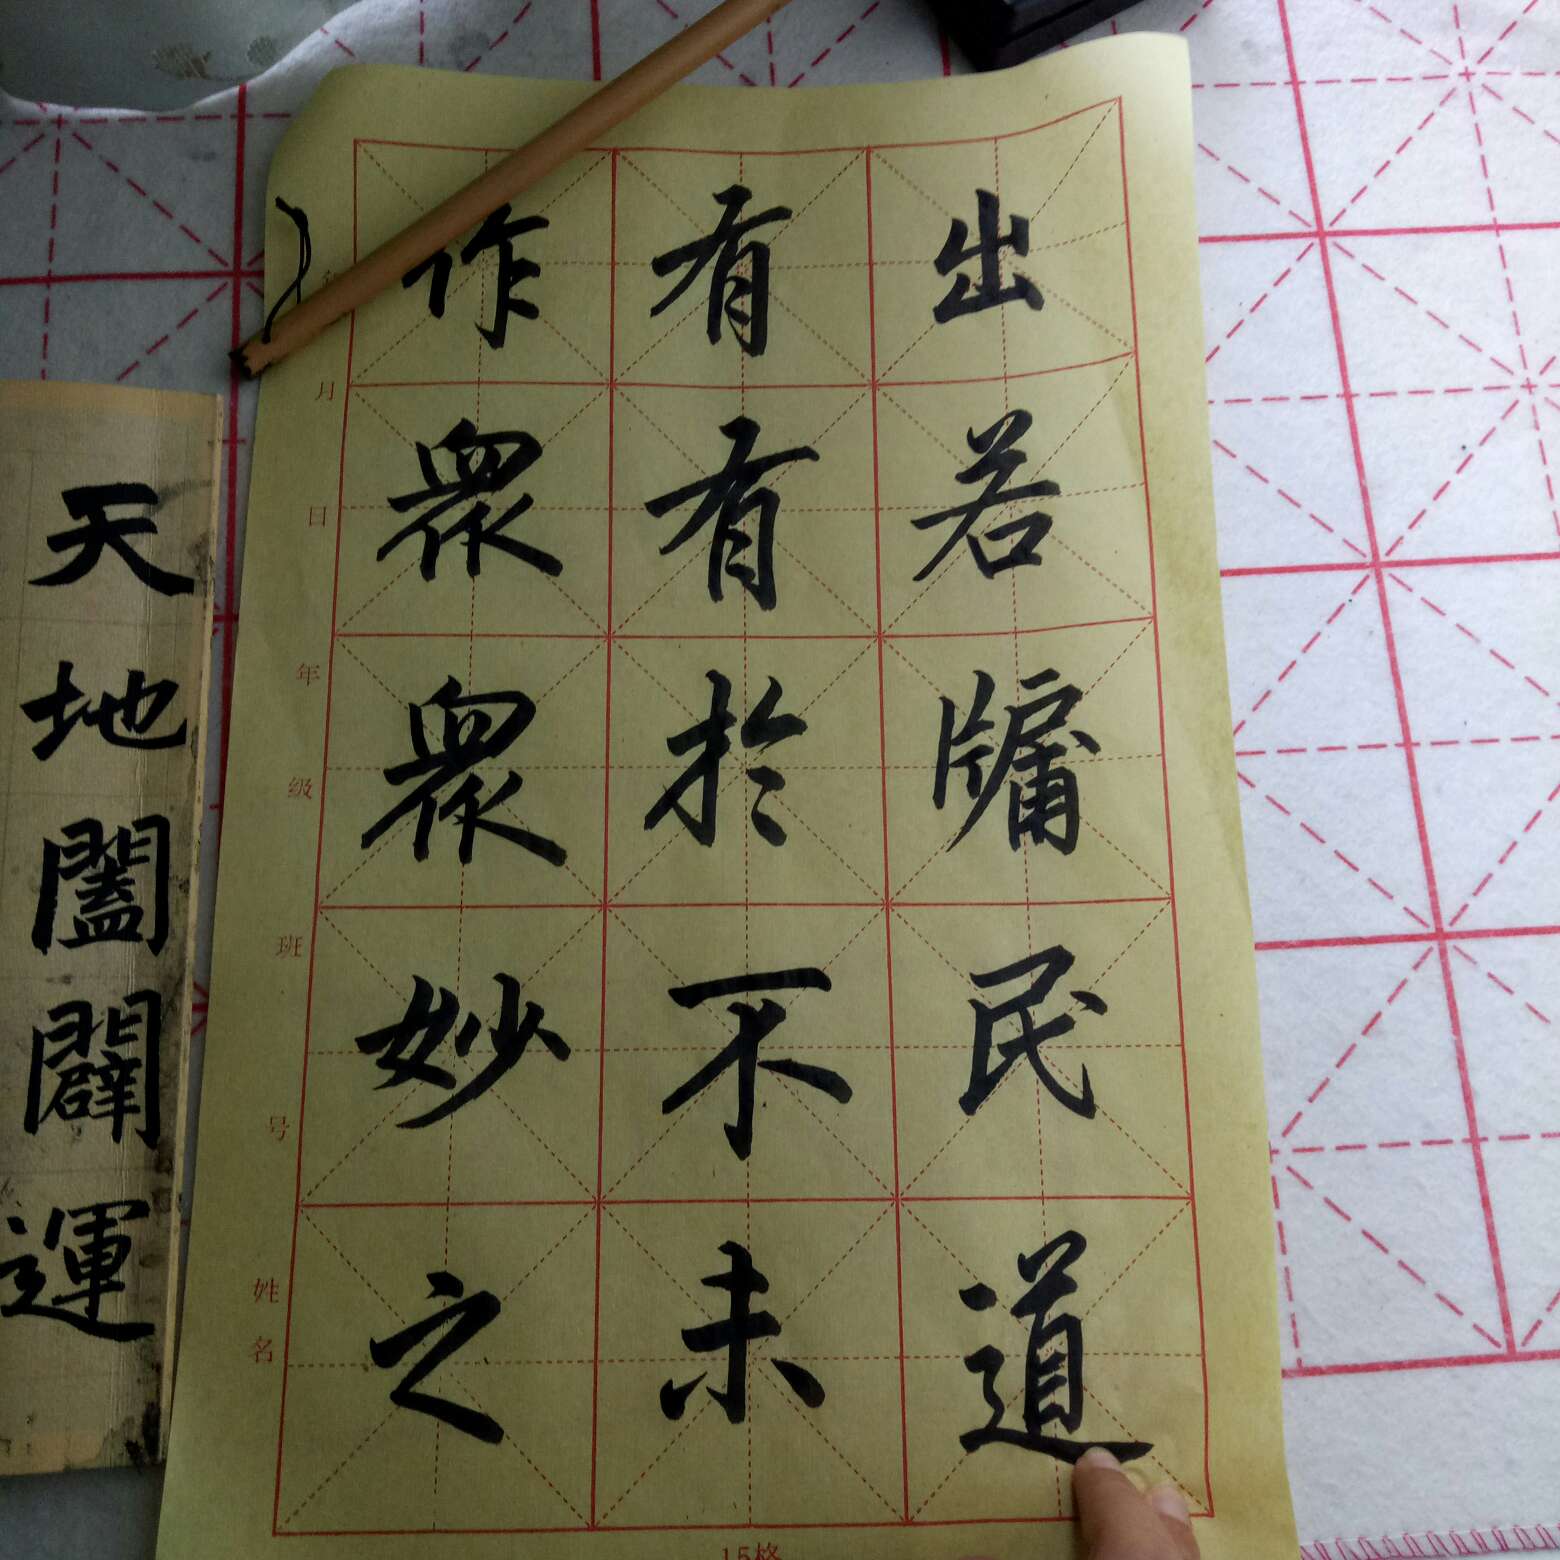 出若牖民道
有有於不未
作衆衆妙之
月
日
年
级
班
号
姓
名
天地闔闢運
15格